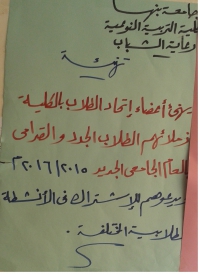 جامعة بنها
كلية التربية النوعية
رعاية الشباب
تهنئة
يهنئ أعضاء إتحاد الطلاب بالكلية
زملائهم الطلاب الجدد والقدامى
بالعام الجامعى الجديد ٢٠١٥/٢٠١٦م
ويدعوهم للإشتراك فى الأنشطة
الطلابية المختلفة.